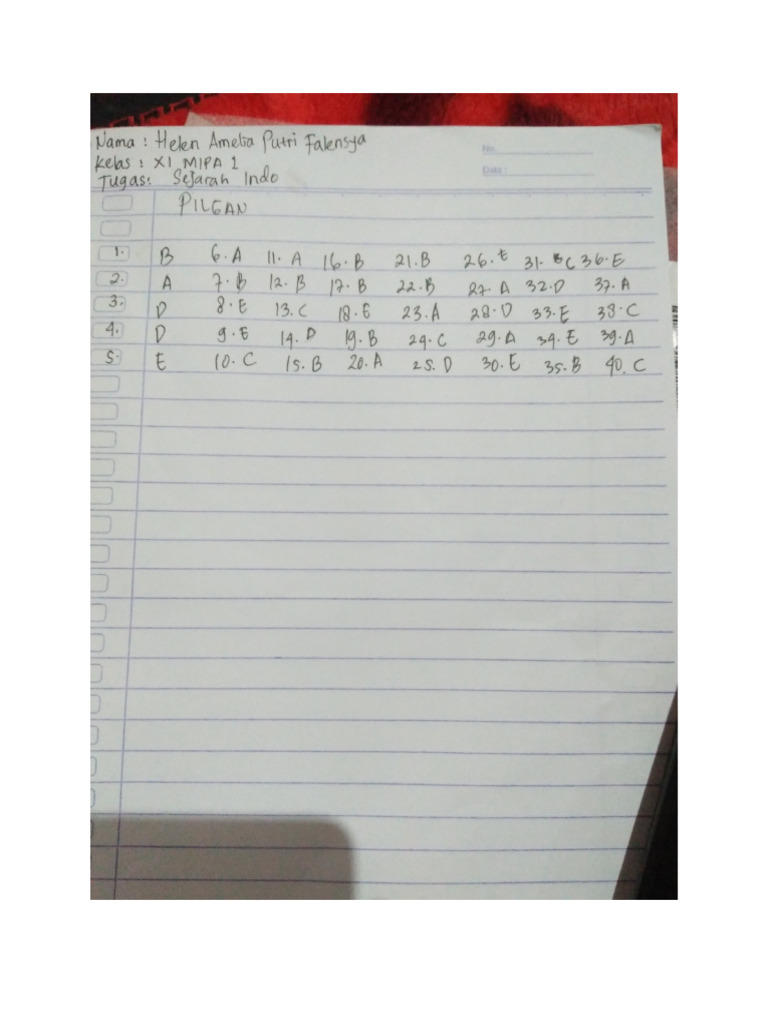 Nama : Helen Amelia Putri Falensya
No.
Kelas : XI MIPA 1
Date :
Tugas: Sejarah Indo
PILGAN
1. B 6. A 11. A 16. B 21. B 26. E 31. C 36. E
2. A 7. B 12. B 17. B 22. B 27. A 32. D 37. A
3. D 8. E 13. C 18. E 23. A 28. D 33. E 38. C
4. D 9. E 14. D 19. B 24. C 29. A 34. E 39. A
5. E 10. C 15. B 20. A 25. D 30. E 35. B 40. C